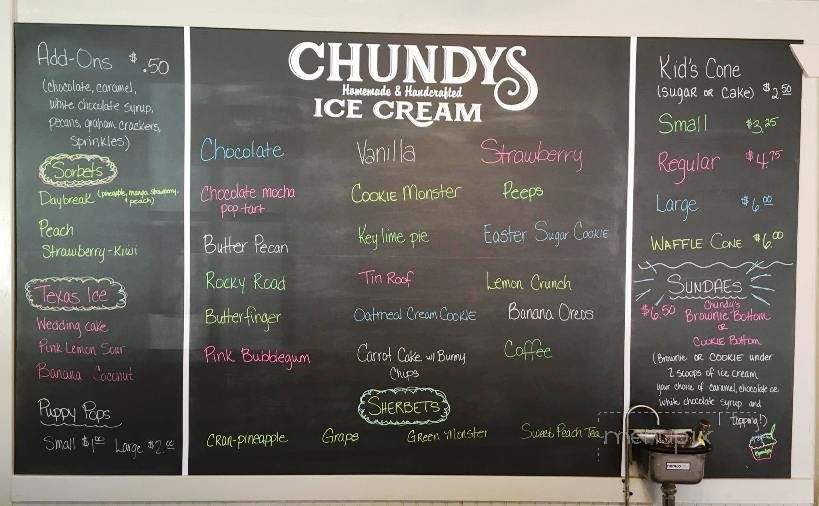 Add-Ons $.50
(chocolate, caramel,
white chocolate syrup,
pecans, graham crackers,
sprinkles)
Sorbets
Daybreak (pineapple, mango, strawberry,
+ peach)
Peach
Strawberry-Kiwi
Texas Ice
Wedding cake
Pink Lemon Sour
Banana Coconut
Puppy Pops
Small $1.00 Large $2.00
CHUNDYS
Homemade & Handcrafted
ICE CREAM
Chocolate Vanilla Strawberry
Chocolate mocha
pop-tart
Cookie Monster Peeps
Butter Pecan Key lime pie Easter Sugar Cookie
Rocky Road Tin Roof Lemon Crunch
Butterfinger Oatmeal Cream Cookie Banana Oreos
Pink Bubblegum Carrot Cake w/ Bunny
Chips
Coffee
SHERBETS
Cran-pineapple Grape Green Monster Sweet Peach Tea
Kid's Cone
(sugar or cake) $2.50
Small $3.25
Regular $4.75
Large $6.00
Waffle Cone $6.00
SUNDAES
$6.50 Chundy's
Brownie Bottom
or
Cookie Bottom
(Brownie or cookie under
2 scoops of ice cream
your choice of caramel, chocolate or
white chocolate syrup and
1 topping!)